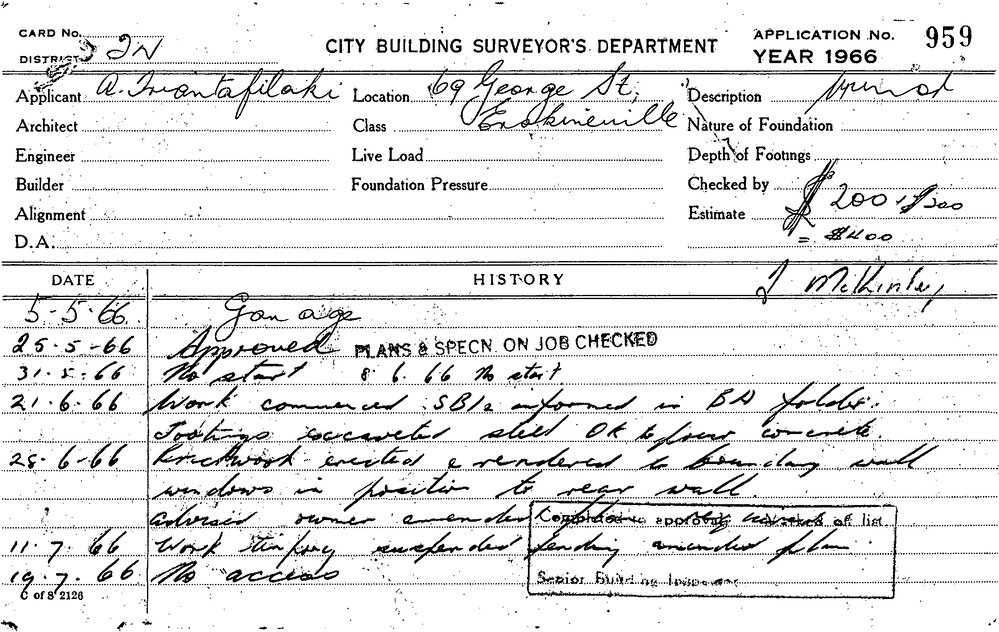 CARD No. 2N
DISTRICT
CITY BUILDING SURVEYOR'S DEPARTMENT
APPLICATION No. 959
YEAR 1966
Applicant A. Triantafilaki Location 69 George St, Description
Architect Class Erskineville Nature of Foundation
Engineer Live Load Depth of Footings
Builder Foundation Pressure Checked by
Alignment Estimate $200 + $200
D.A. = $400
DATE HISTORY J McKinley
5-5-66. Garage
25-5-66 Approved PLANS & SPECN. ON JOB CHECKED
31-5-66 No start 8 6. 66 No start
21.6.66 Work commenced SBI informed in BA folder.
Footings excavated steel OK to pour concrete.
28-6-66 Brickwork erected & rendered to boundary wall
windows in position to rear wall
advised owner amended
Completed as approved of list.
11.7.66 Work suspended pending amended plan
19.7.66 No access
Senior Building Inspector
C of S 2126